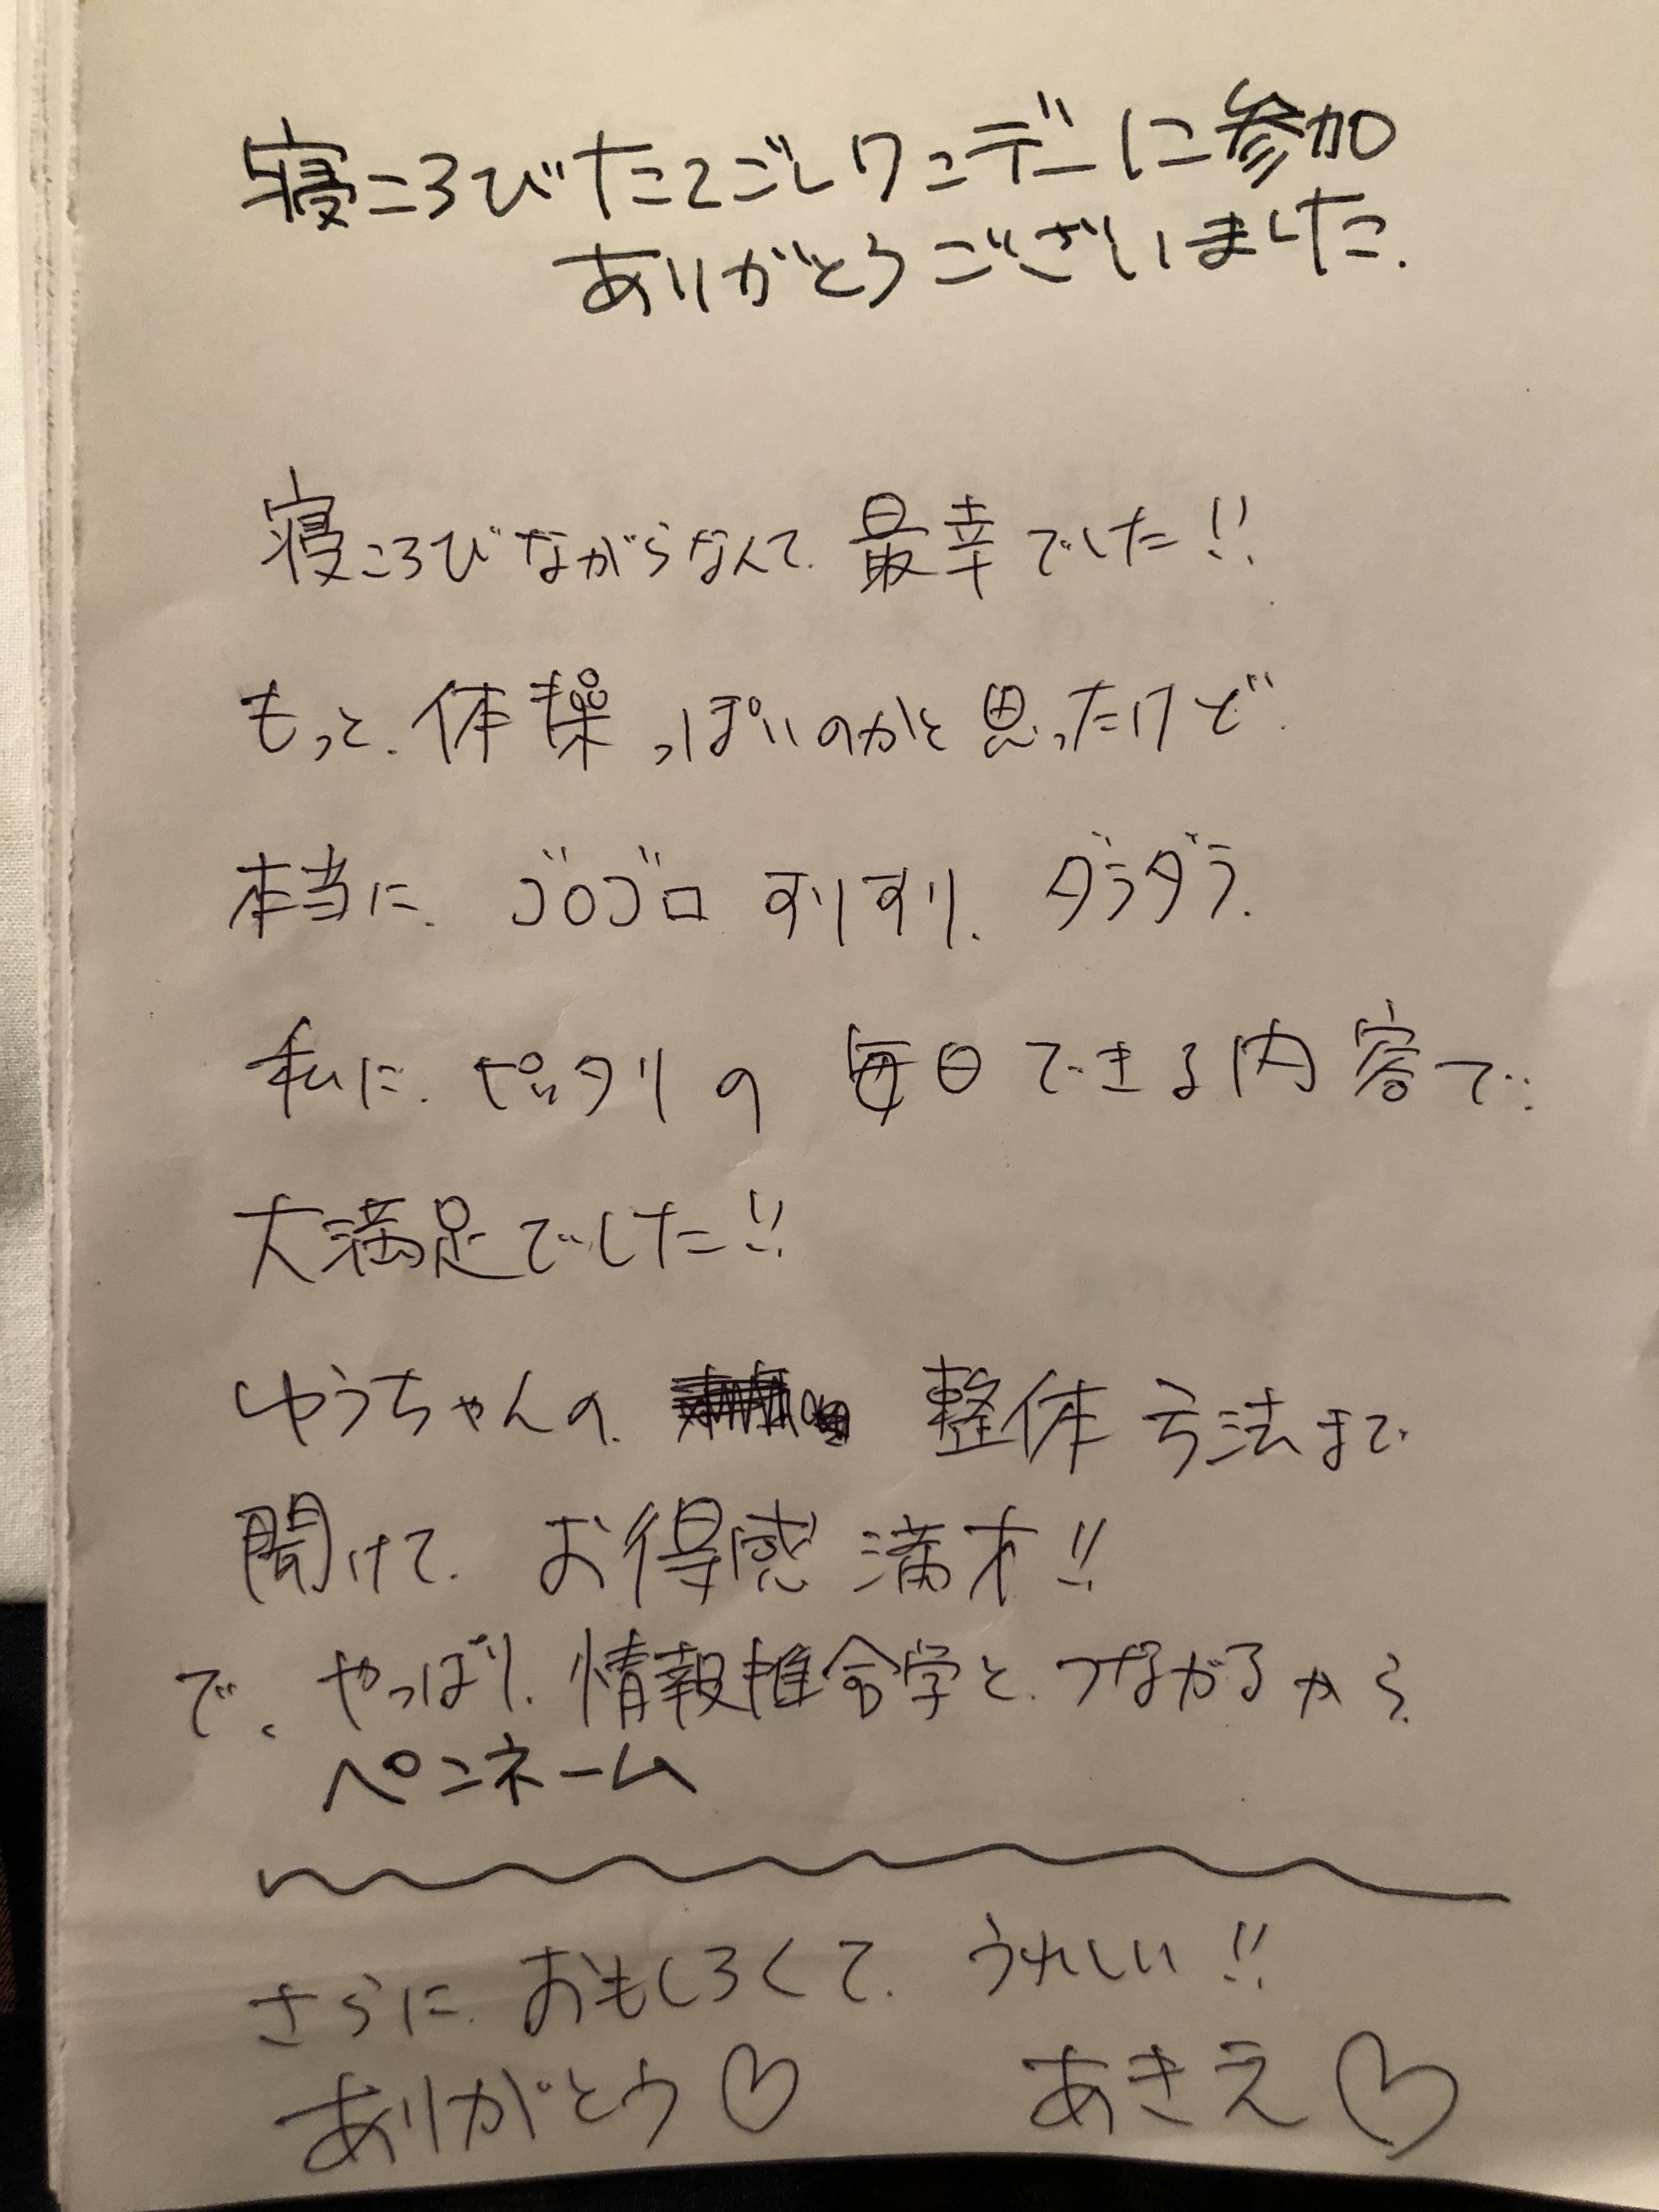 寝ころびたてごしワンデーに参加
ありがとうございました.
寝ころびながらなんて 最幸でした!!
もっと、体操っぽいのかと思ったけど
本当に、ゴロゴロ すりすり、ダラダラ、
私に、ピッタリの 毎日できる内容で、
大満足でした!!
ゆうちゃんの、整体方法まで
聞けて、お得感満才!!
で、やっぱり、情報推命学と、つながるから
ペンネーム
さらに、おもしろくて、うれしい!!
ありがとう♡ あきえ♡